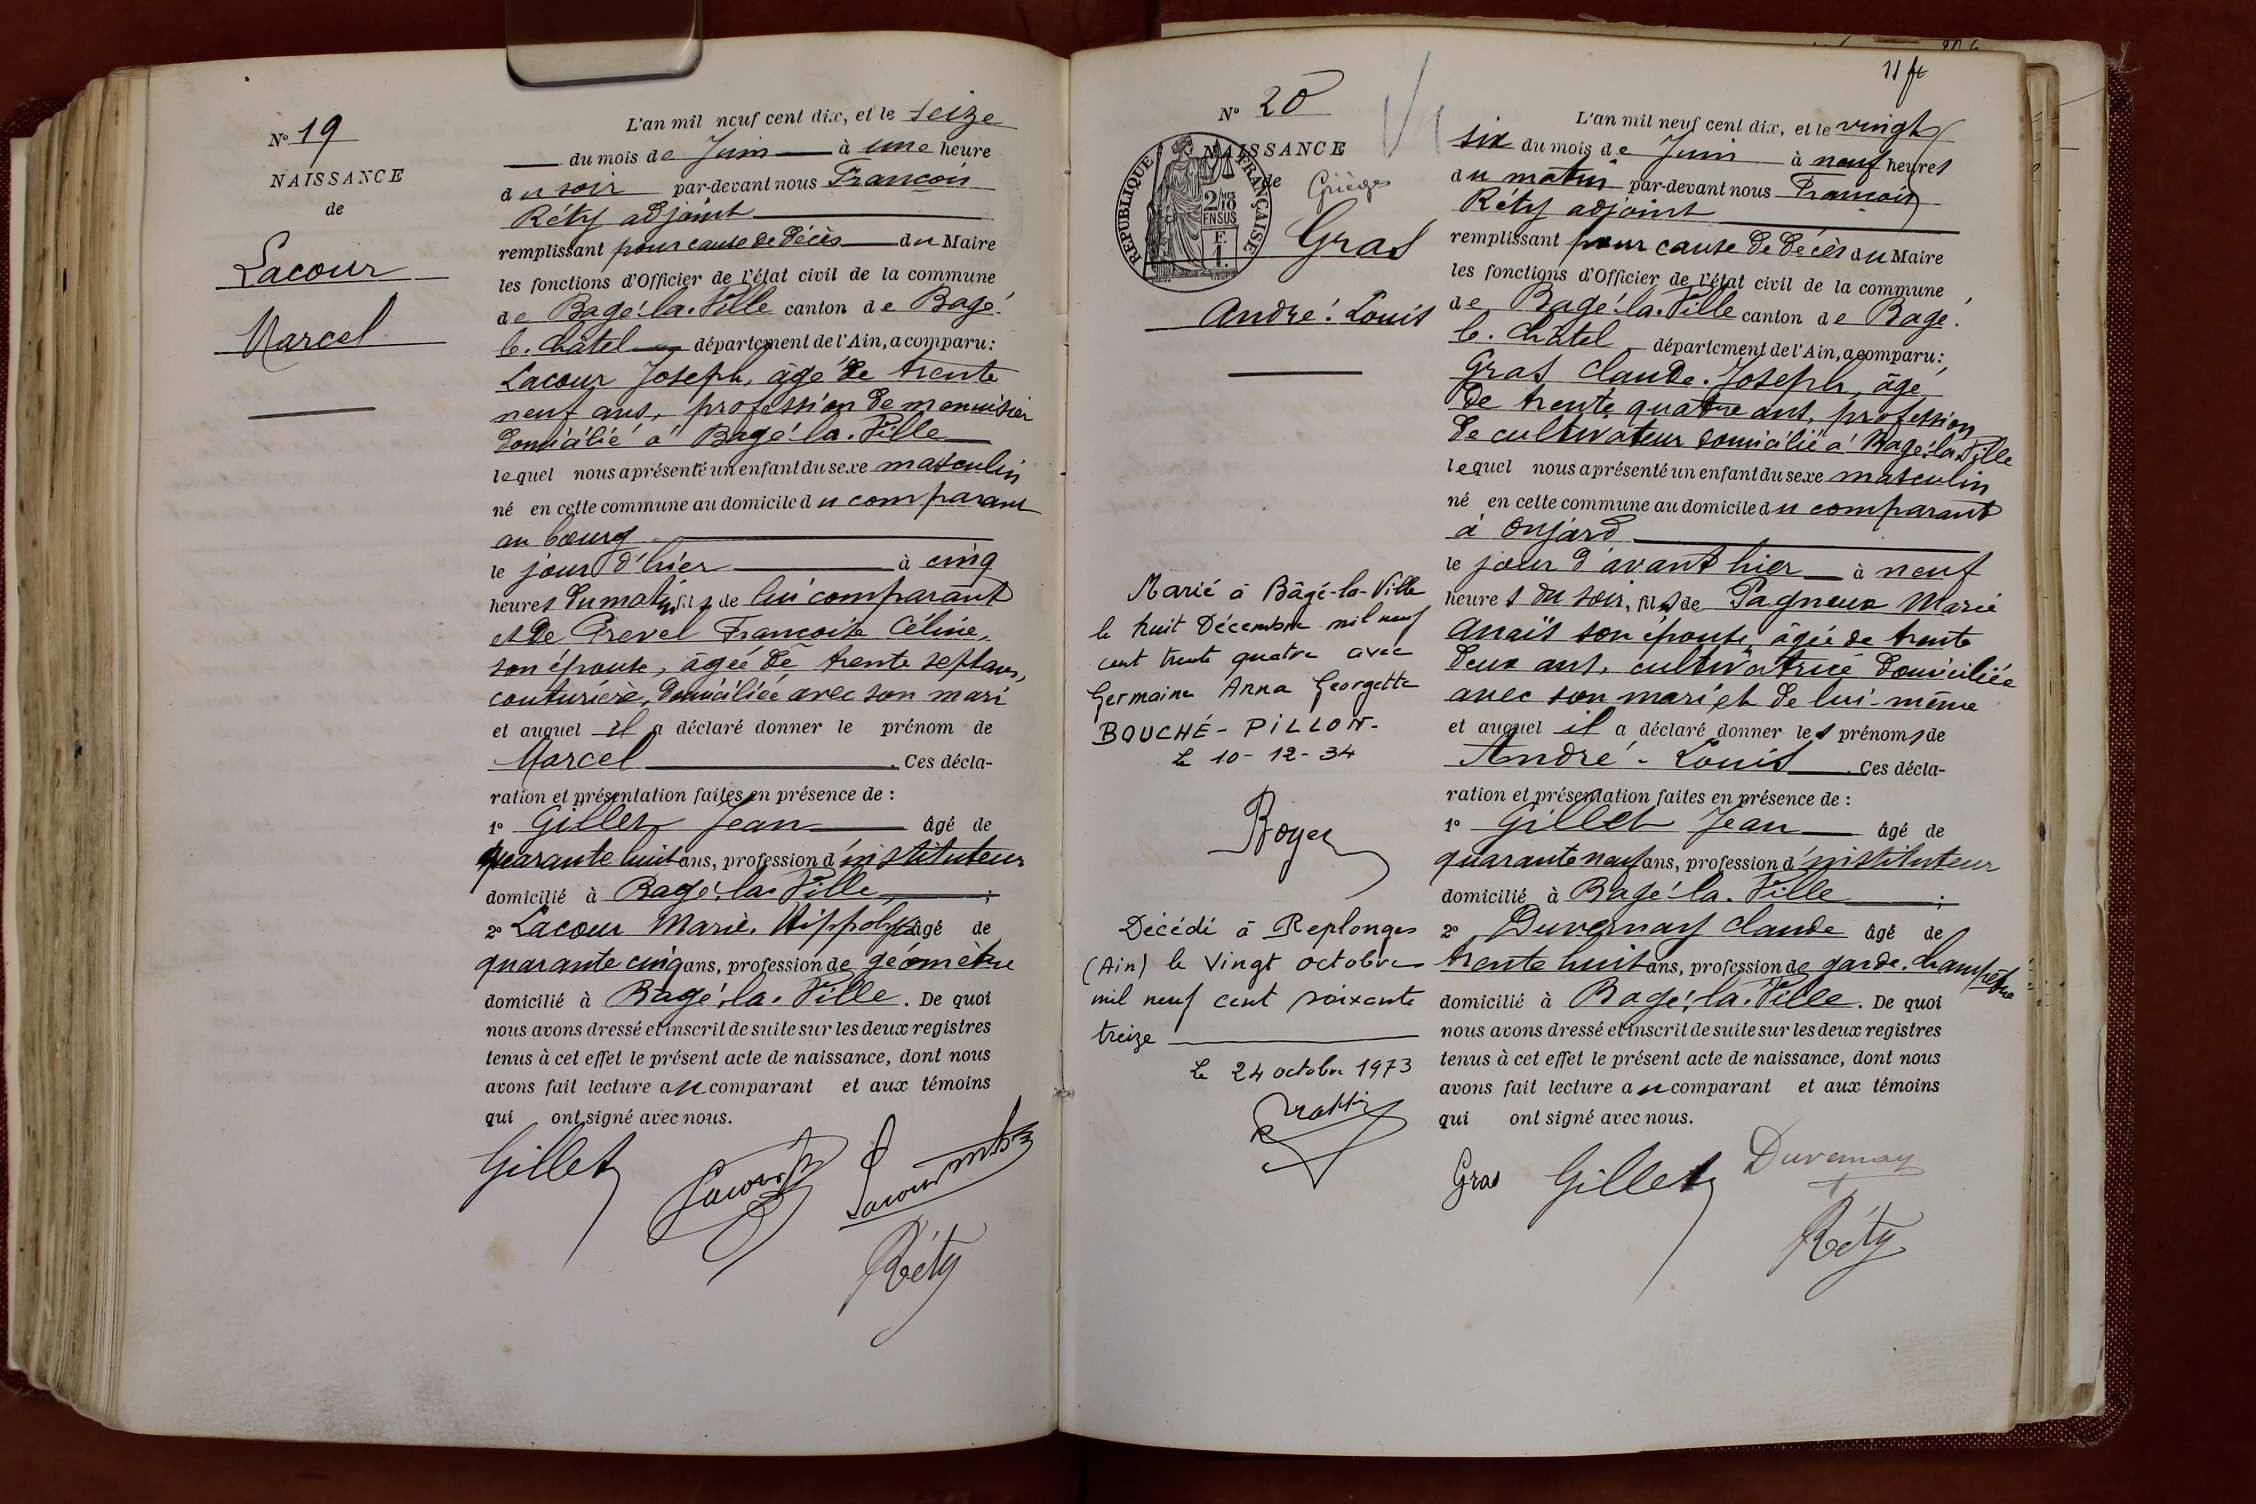 N° 19
NAISSANCE
de
Lacour
Marcel
L'an mil neuf cent dix, et le seize
du mois de Juin à une heure
du soir par-devant nous François
Réty adjoint
remplissant pour cause de décès du Maire
les fonctions d'Officier de l'état civil de la commune
de Bagé-la-Ville canton de Bagé-
le-Châtel département de l'Ain, a comparu:
Lacour Joseph, âgé de trente
neuf ans, profession de menuisier
domicilié à Bagé-la-Ville
lequel nous a présenté un enfant du sexe masculin
né en cette commune au domicile du comparant
au bourg
le jour d'hier à cinq
heures du matin, fils de lui comparant
et de Prevel Françoise Céline,
son épouse, âgée de trente sept ans,
couturière, domiciliée avec son mari
et auquel il a déclaré donner le prénom de
Marcel. Ces décla-
ration et présentation faites en présence de :
1° Gillet Jean âgé de
quarante huit ans, profession d'instituteur
domicilié à Bagé-la-Ville ;
2° Lacour Marie, Hippolyte âgé de
quarante cinq ans, profession de géomètre
domicilié à Bagé-la-Ville. De quoi
nous avons dressé et inscrit de suite sur les deux registres
tenus à cet effet le présent acte de naissance, dont nous
avons fait lecture au comparant et aux témoins
qui ont signé avec nous.
Gillet Lacour Lacour
Réty
11 ft
N° 20
NAISSANCE
de Grièges
RÉPUBLIQUE FRANÇAISE
2/10 EN SUS
F.
1.
Gras
André-Louis
L'an mil neuf cent dix, et le vingt
six du mois de Juin à neuf heures
du matin par-devant nous François
Réty adjoint
remplissant pour cause de décès du Maire
les fonctions d'Officier de l'état civil de la commune
de Bagé-la-Ville canton de Bagé-
le-Châtel département de l'Ain, a comparu:
Gras Claude-Joseph, âgé
de trente quatre ans, profession
de cultivateur domicilié à Bagé-la-Ville
lequel nous a présenté un enfant du sexe masculin
né en cette commune au domicile du comparant
à Onjard
le jour d'avant hier à neuf
heures du soir, fils de Pagneux Marie
Anaïs son épouse, âgée de trente
deux ans, cultivatrice domiciliée
avec son mari et de lui-même
et auquel il a déclaré donner les prénoms de
André-Louis. Ces décla-
ration et présentation faites en présence de :
1° Gillet Jean âgé de
quarante neuf ans, profession d'instituteur
domicilié à Bagé-la-Ville ;
2° Duvernay Claude âgé de
trente huit ans, profession de garde-champêtre
domicilié à Bagé-la-Ville. De quoi
nous avons dressé et inscrit de suite sur les deux registres
tenus à cet effet le présent acte de naissance, dont nous
avons fait lecture au comparant et aux témoins
qui ont signé avec nous.
Gras Gillet Duvernay
Réty
Marié à Bâgé-la-Ville
le huit Décembre mil neuf
cent trente quatre avec
Germaine Anna Georgette
BOUCHÉ-PILLON-
Le 10-12-34
Royer
Décédé à Replonges
(Ain) le vingt octobre
mil neuf cent soixante
treize
Le 24 octobre 1973